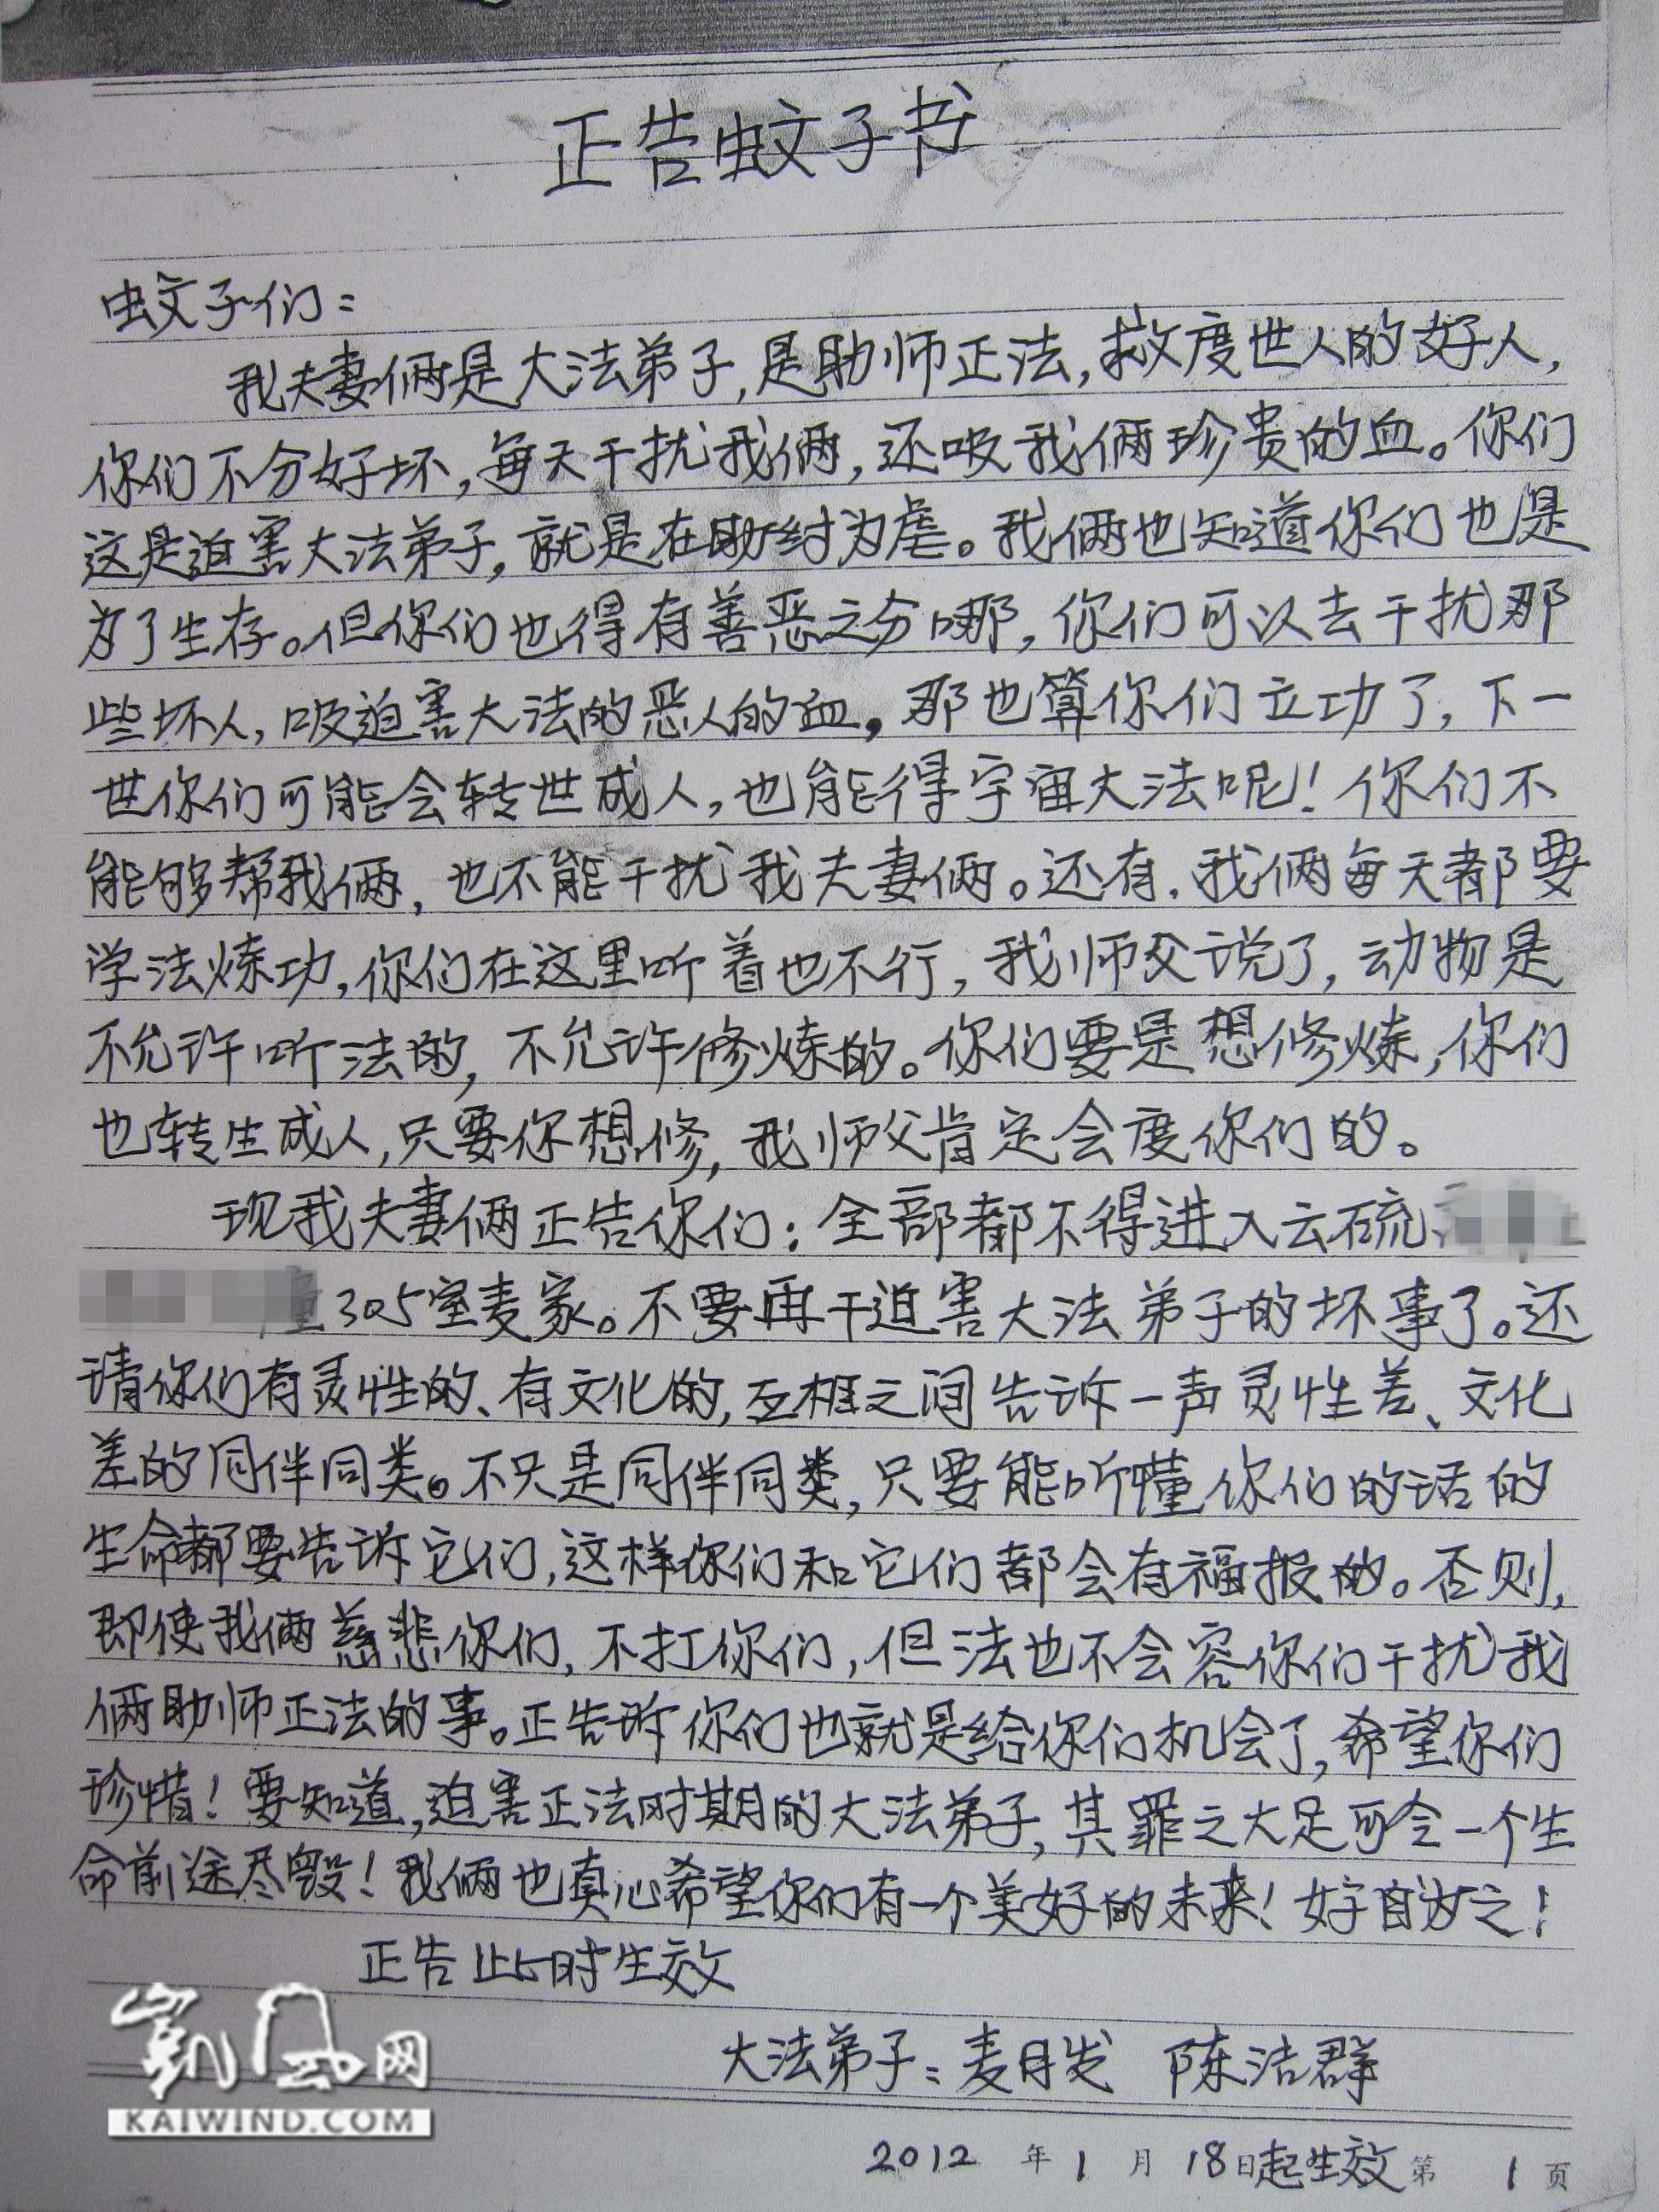 正告蚊子书
蚊子们：
我夫妻俩是大法弟子，是助师正法，救度世人的好人，
你们不分好坏，每天干扰我俩，还吸我俩珍贵的血。你们
这是迫害大法弟子，就是在助纣为虐。我俩也知道你们也是
为了生存。但你们也得有善恶之分哪，你们可以去干扰那
些坏人，吸迫害大法的恶人的血，那也算你们立功了，下一
世你们可能会转世成人，也能得宇宙大法呢！你们不
能够帮我俩，也不能干扰我夫妻俩。还有，我俩每天都要
学法炼功，你们在这里听着也不行，我师父说了，动物是
不允许听法的，不允许修炼的。你们要是想修炼，你们
也转生成人，只要你想修，我师父肯定会度你们的。
现我夫妻俩正告你们：全部都不得进入云硫
305室麦家。不要再干迫害大法弟子的坏事了。还
请你们有灵性的、有文化的，互相之间告诉一声灵性差、文化
差的同伴同类。不只是同伴同类，只要能听懂你们的话的
生命都要告诉它们，这样你们和它们都会有福报的。否则，
即使我俩慈悲你们，不打你们，但法也不会容你们干扰我
俩助师正法的事。正告诉你们也就是给你们机会了，希望你们
珍惜！要知道，迫害正法时期的大法弟子，其罪之大足可令一个生
命前途尽毁！我俩也真心希望你们有一个美好的未来！好自为之！
正告此时生效
大法弟子：麦月发 陈洁群
2012年1月18日起生效 第1页
凯风网
KAIWIND.COM